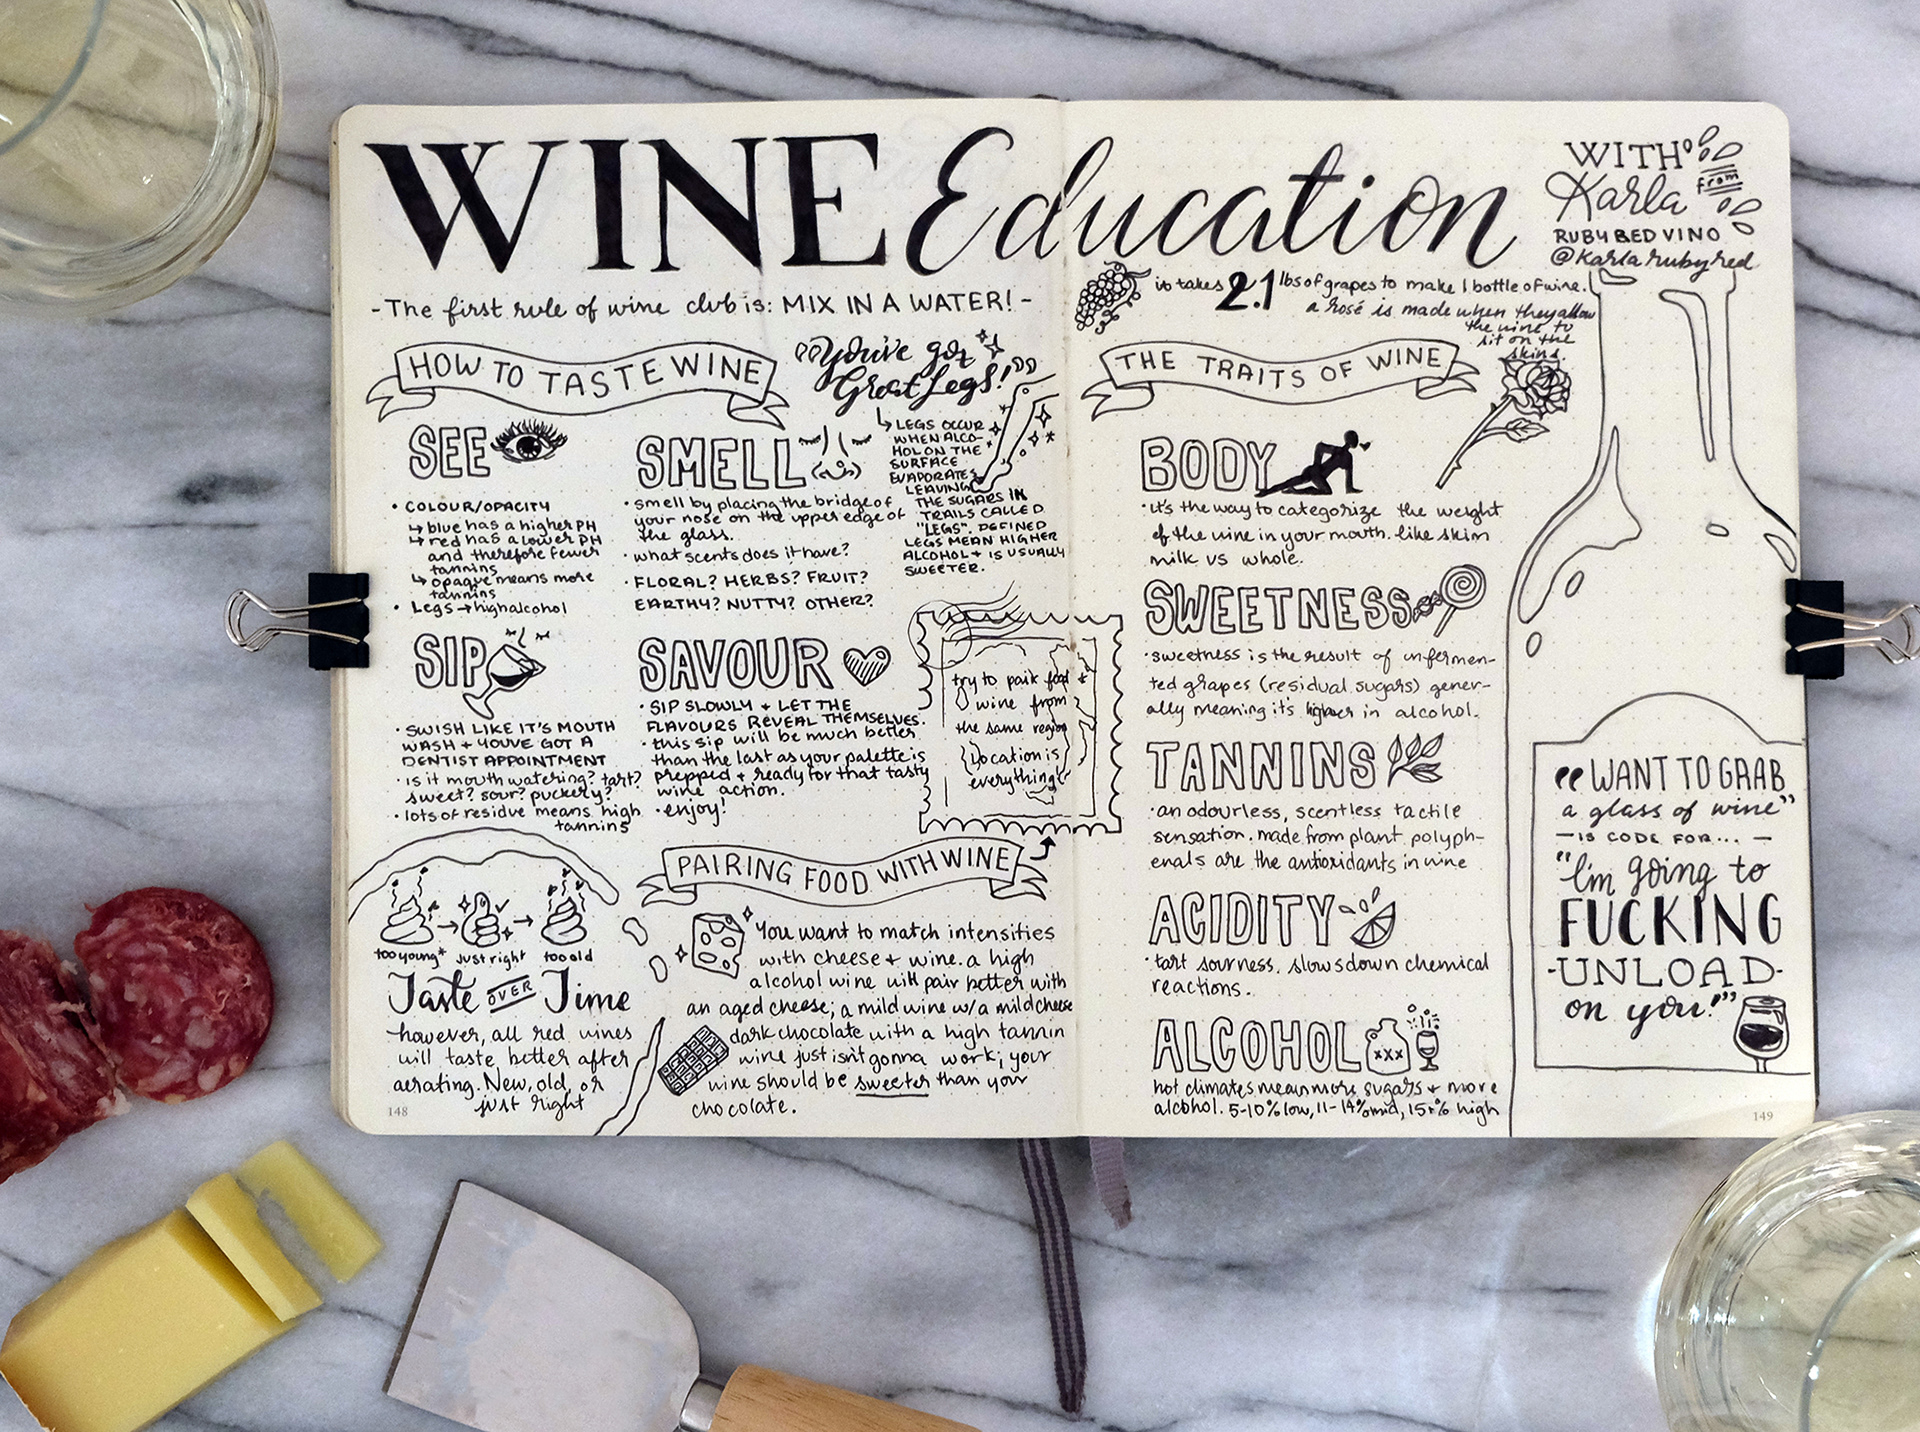 WINE Education
WITH
Karla
from
RUBY RED VINO
@karlarubyred
-The first rule of wine club is: MIX IN A WATER!-
it takes 2.1 lbs of grapes to make 1 bottle of wine.
a rosé is made when they allow
the wine to
sit on the
skins.
HOW TO TASTE WINE
"You've got
Great Legs!"
LEGS OCCUR
WHEN ALCO-
HOL ON THE
SURFACE
EVAPORATES
LEAVING
THE SUGARS IN
TRAILS CALLED
"LEGS". DEFINED
LEGS MEAN HIGHER
ALCOHOL + IS USUALLY
SWEETER.
SEE
• COLOUR/OPACITY
↳ blue has a higher PH
↳ red has a lower PH
and therefore fewer
tannins
↳ opaque means more
tannins
• Legs → high alcohol
SMELL
• smell by placing the bridge of
your nose on the upper edge of
the glass.
• what scents does it have?
• FLORAL? HERBS? FRUIT?
EARTHY? NUTTY? OTHER?
SIP
• SWISH LIKE IT'S MOUTH
WASH + YOUVE GOT A
DENTIST APPOINTMENT
• is it mouth watering? tart?
sweet? sour? puckery?
• lots of residue means high
tannins
SAVOUR
• SIP SLOWLY + LET THE
FLAVOURS REVEAL THEMSELVES.
• this sip will be much better
than the last as your palette is
prepped + ready for that tasty
wine action.
• enjoy!
try to pair food +
wine from
the same region
Location is
everything!
too young*
just right
too old
Taste OVER Time
however, all red wines
will taste better after
aerating. New, old, or
just right
148
PAIRING FOOD WITH WINE
You want to match intensities
with cheese + wine. a high
alcohol wine will pair better with
an aged cheese; a mild wine w/ a mild cheese
dark chocolate with a high tannin
wine just isn't gonna work; your
wine should be sweeter than your
chocolate.
THE TRAITS OF WINE
BODY
• it's the way to categorize the weight
of the wine in your mouth. like skim
milk vs whole.
SWEETNESS
• sweetness is the result of unfermen-
ted grapes (residual sugars) gener-
ally meaning it's higher in alcohol.
TANNINS
• an odourless, scentless tactile
sensation. made from plant polyph-
enals are the antioxidants in wine
ACIDITY
• tart sourness. slows down chemical
reactions.
ALCOHOL
XXX
hot climates mean more sugars + more
alcohol. 5-10% low, 11-14% mid, 15+% high
"WANT TO GRAB
a glass of wine"
— IS CODE FOR... —
"I'm going to
FUCKING
-UNLOAD-
on you!"
149